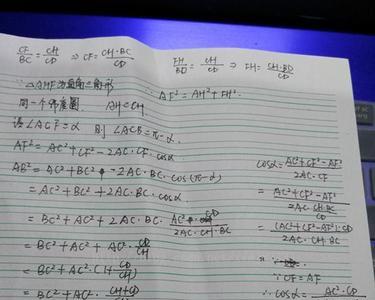 CF/BC = CH/CD ⇒ CF = CH·BC/CD
FH/BD = CH/CD ⇒ FH = CH·BD/CD
∵△AHF为直角三角形
∴ AF² = AH² + FH²
同一个
AH = CH
设∠ACF = α 则∠ACB = π-α
AF² = AC² + CF² - 2AC·CF·cosα
AB² = AC² + BC² - 2AC·BC·cos(π-α)
= AC² + BC² + 2AC·BC·cosα
= BC² + AC² + 2AC·BC·
= BC² + AC² + AC²·CD/CH
= BC² + AC²·(1+CD/CH)
= BC² + AC²·CH+CD
cosα = AC²+CF²-AF²/2AC·CF
= AC²+CF²-AF²/2AC·CH·BC/CD
= (AC²+CF²-AF²)·CD/2AC·CH·BC
∵ CF = AF
∴ cosα = AC²·CD